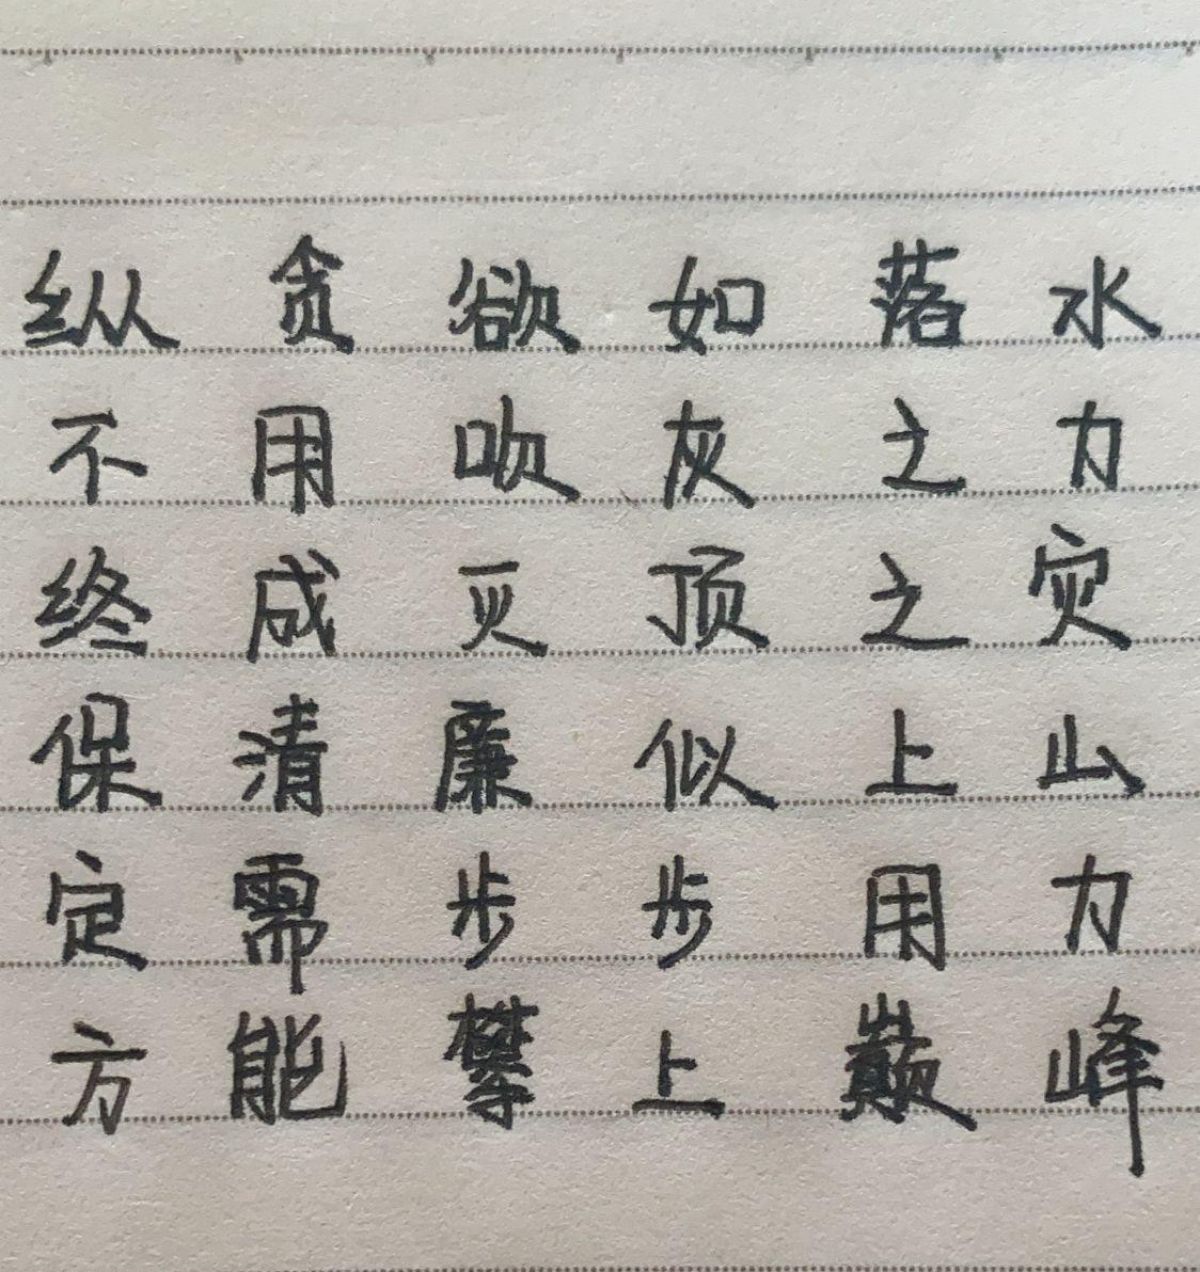 纵贪欲如落水
不用吹灰之力
终成灭顶之灾
保清廉似上山
定需步步用力
方能攀上巅峰